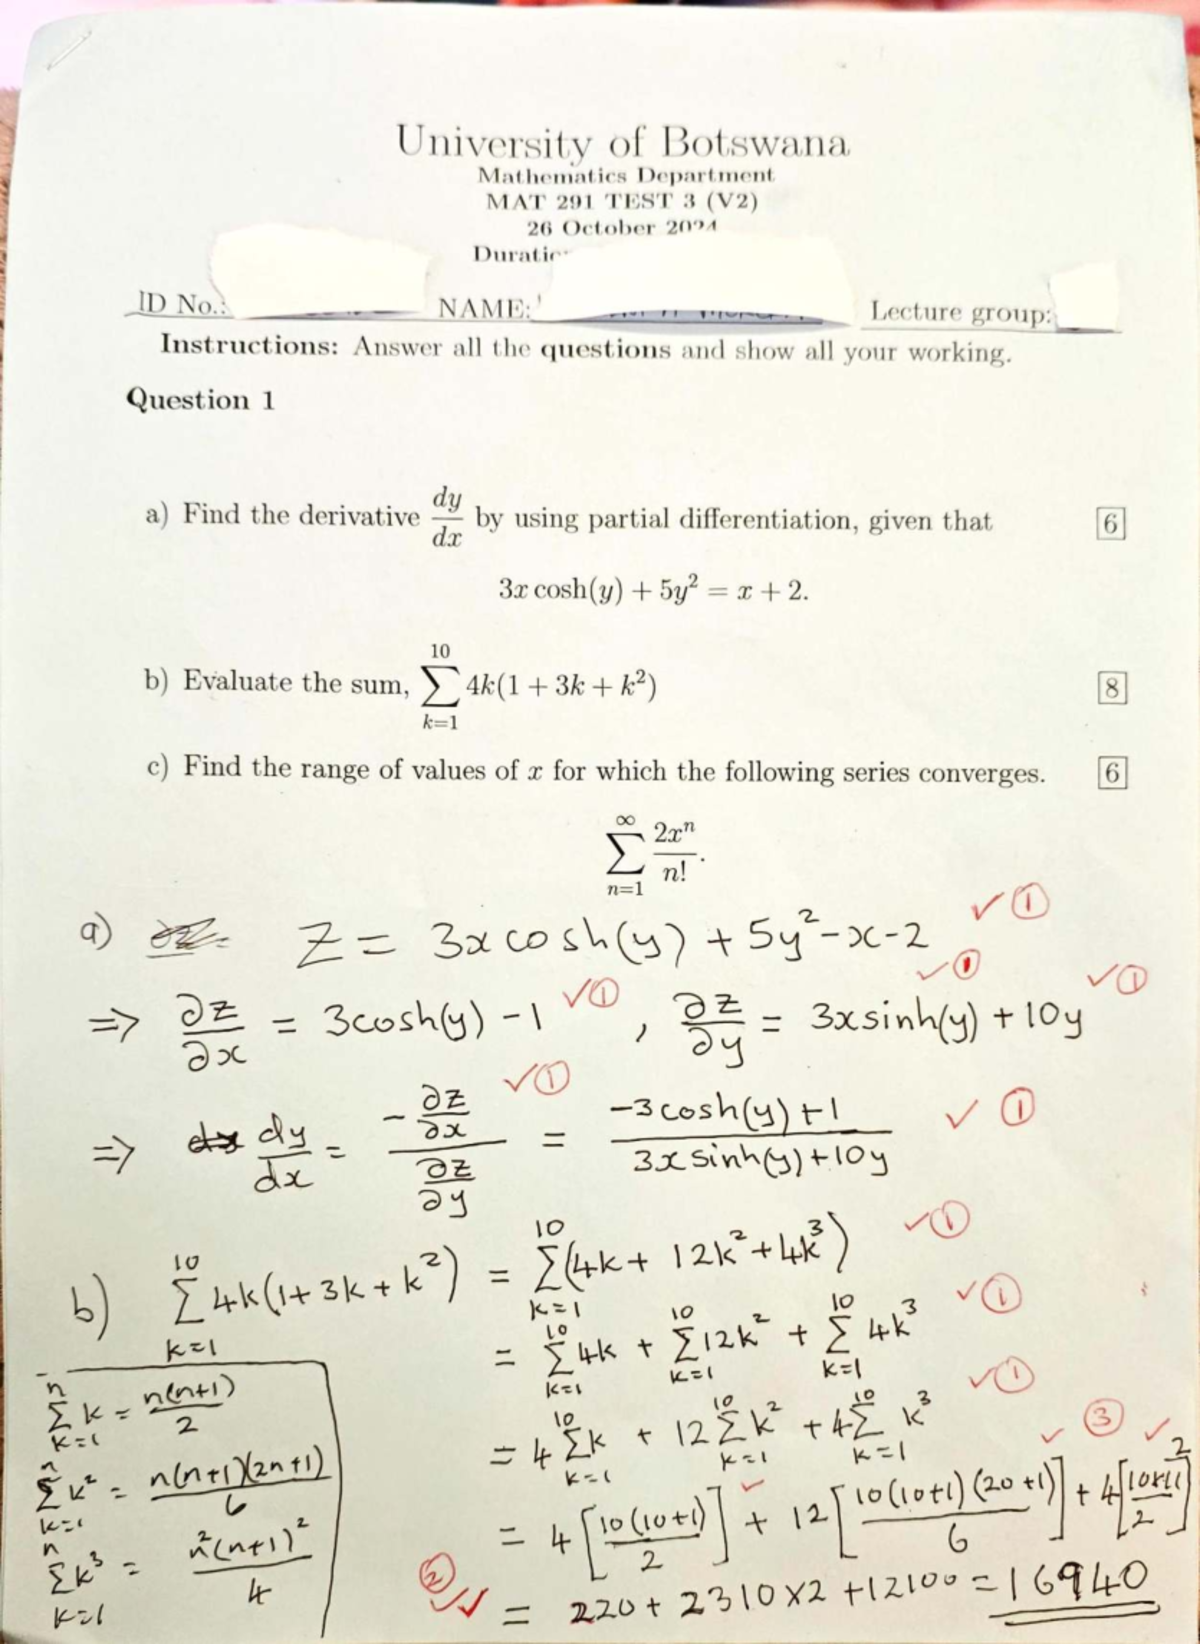 University of Botswana
Mathematics Department
MAT 291 TEST 3 (V2)
26 October 2024
Duratio
ID No.: NAME: Lecture group:
Instructions: Answer all the questions and show all your working.
Question 1
a) Find the derivative dy/dx by using partial differentiation, given that [6]
3x cosh(y) + 5y² = x + 2.
b) Evaluate the sum, ∑_{k=1}^{10} 4k(1 + 3k + k²) [8]
c) Find the range of values of x for which the following series converges. [6]
∑_{n=1}^{∞} 2xⁿ/n!.
a) Z = 3x cosh(y) + 5y² - x - 2 ✓①
=> ∂z/∂x = 3cosh(y) - 1 ✓① , ∂z/∂y = 3x sinh(y) + 10y ✓① ✓①
=> dy/dx = -(∂z/∂x)/(∂z/∂y) ✓① = (-3cosh(y) + 1)/(3x sinh(y) + 10y) ✓①
b) ∑_{k=1}^{10} 4k(1 + 3k + k²) = ∑_{k=1}^{10} (4k + 12k² + 4k³) ✓①
= ∑_{k=1}^{10} 4k + ∑_{k=1}^{10} 12k² + ∑_{k=1}^{10} 4k³ ✓①
= 4 ∑_{k=1}^{10} k + 12 ∑_{k=1}^{10} k² + 4 ∑_{k=1}^{10} k³ ✓①
= 4[10(10+1)/2] ✓ + 12[10(10+1)(20+1)/6] ✓ + 4[10×11/2]² ✓ ③
② ✓✓ = 220 + 2310×2 + 12100 = 16940
∑_{k=1}^{n} k = n(n+1)/2
∑_{k=1}^{n} k² = n(n+1)(2n+1)/6
∑_{k=1}^{n} k³ = n²(n+1)²/4